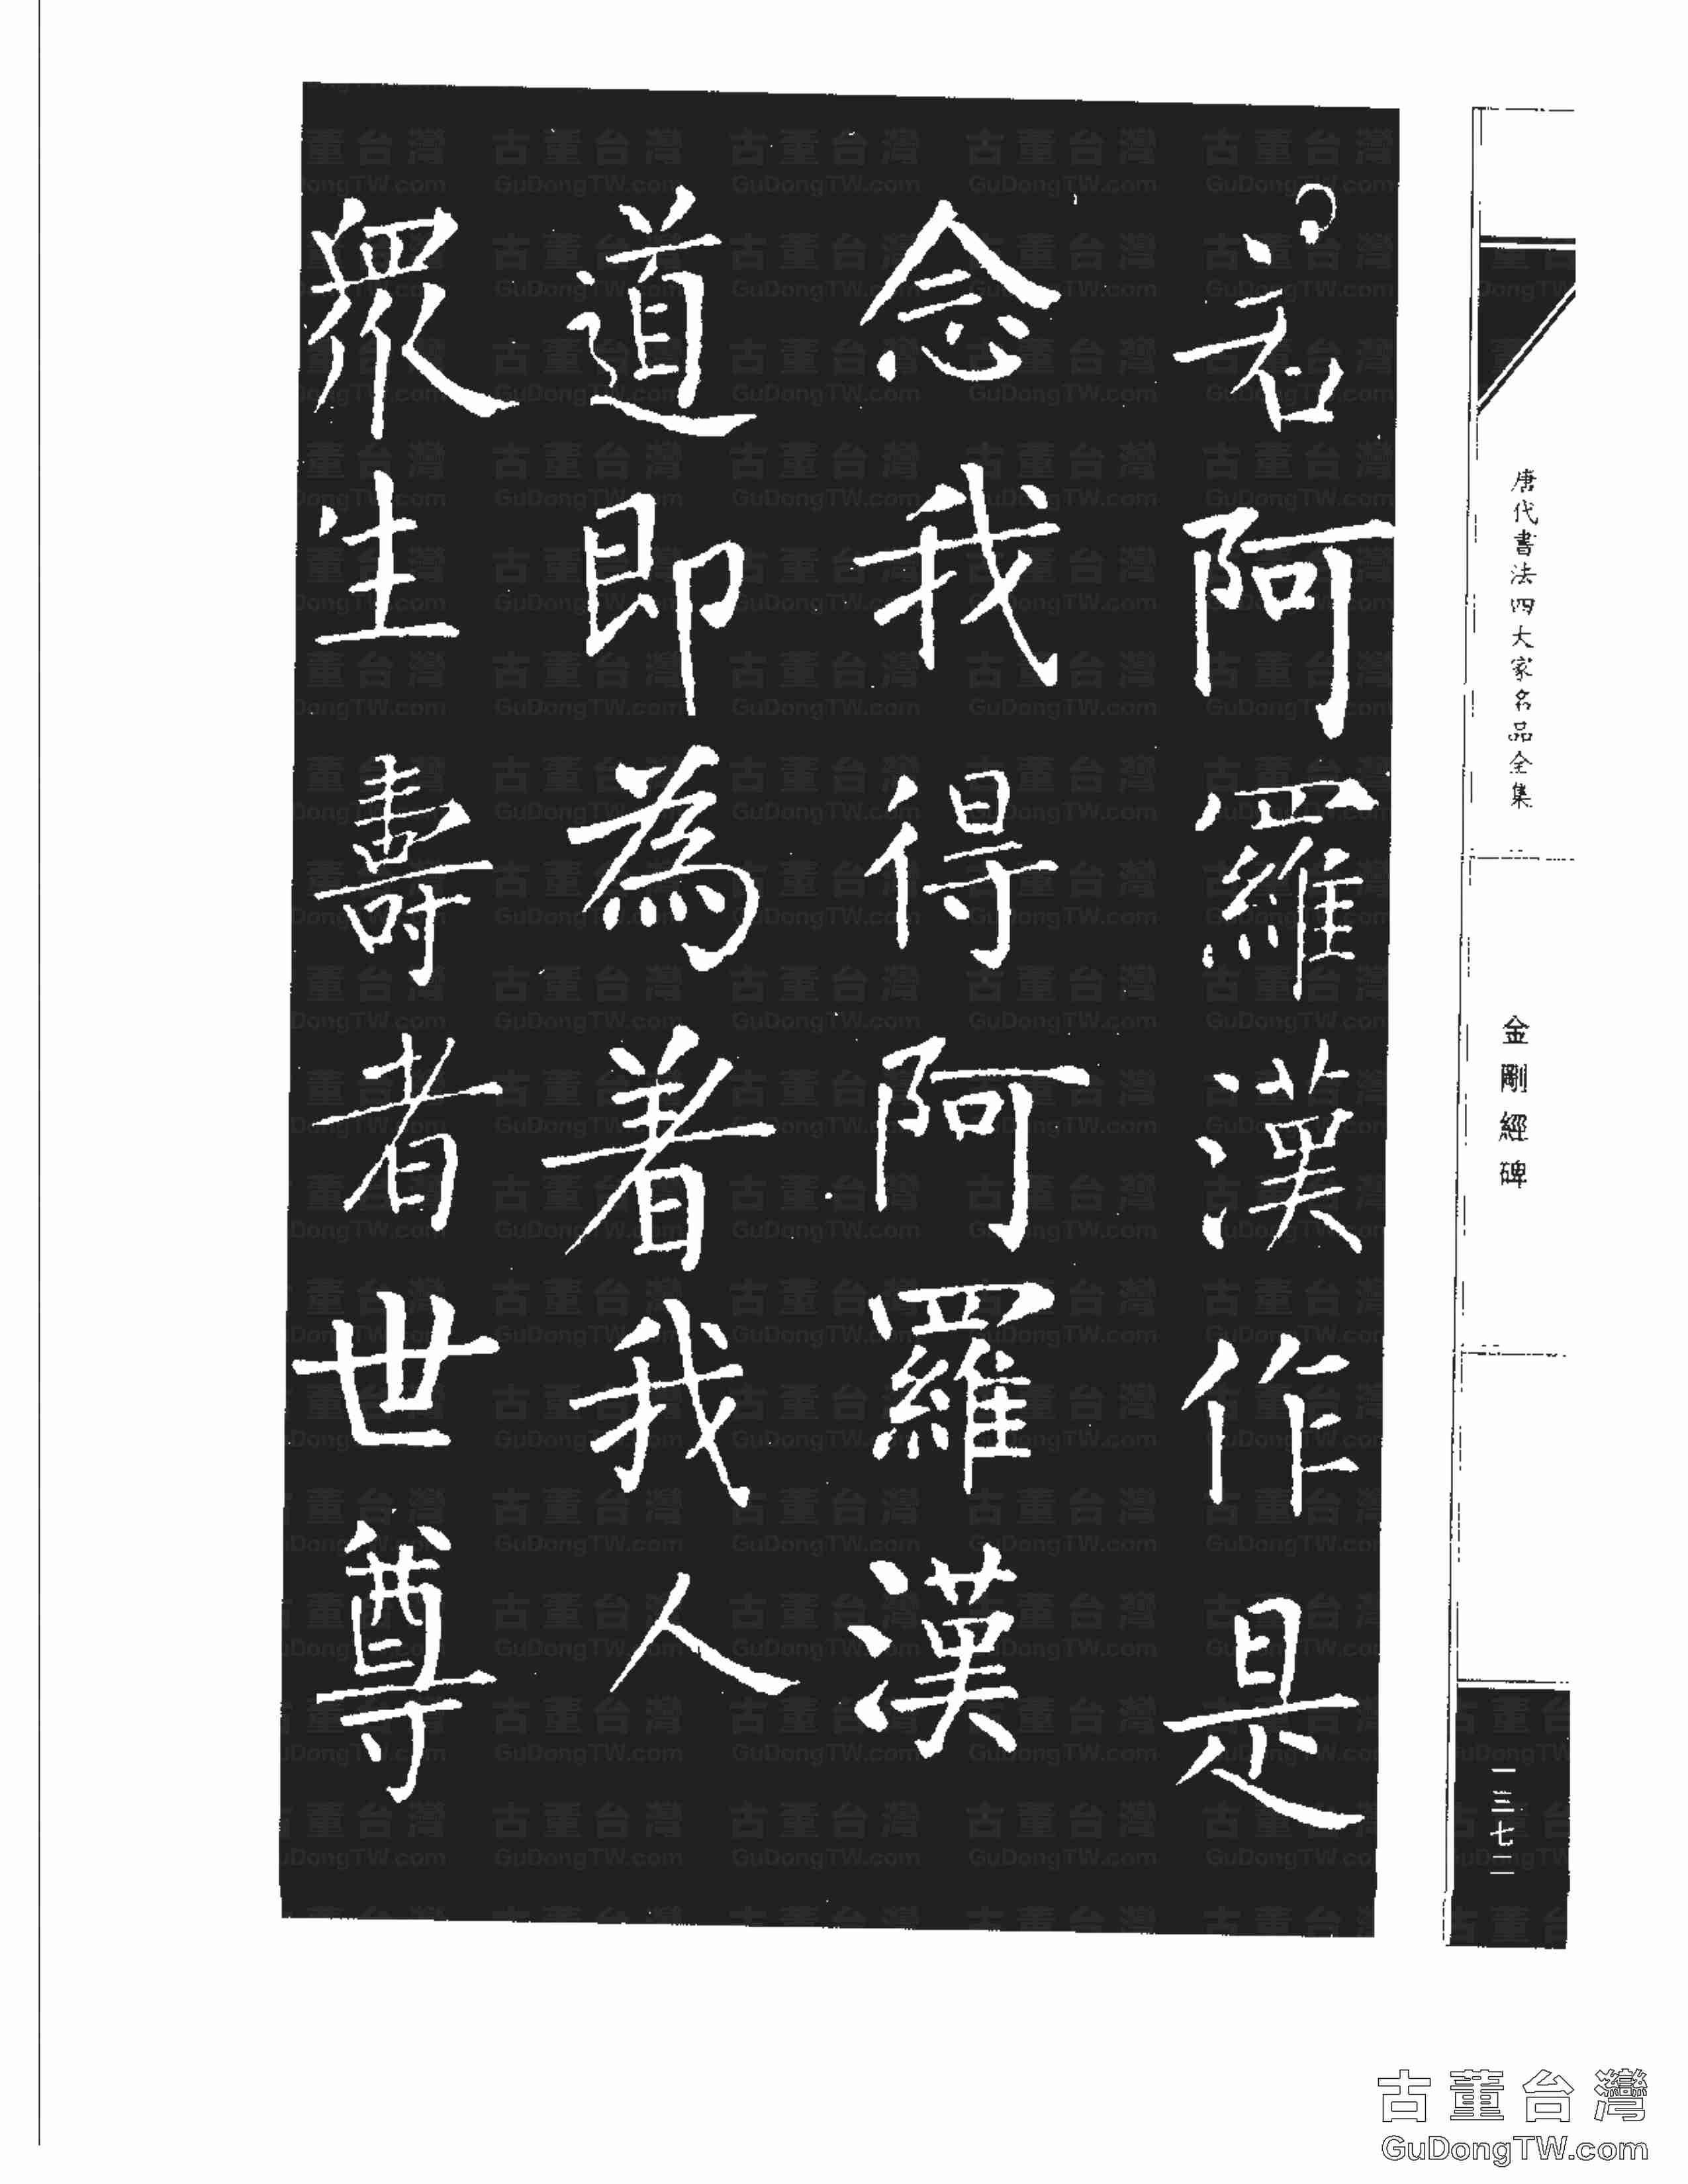 唐代書法四大家名品全集
金剛經碑
一三七二
若阿羅漢作是
念我得阿羅漢
道即為著我人
眾生壽者世尊
古董台灣
GuDongTW.com